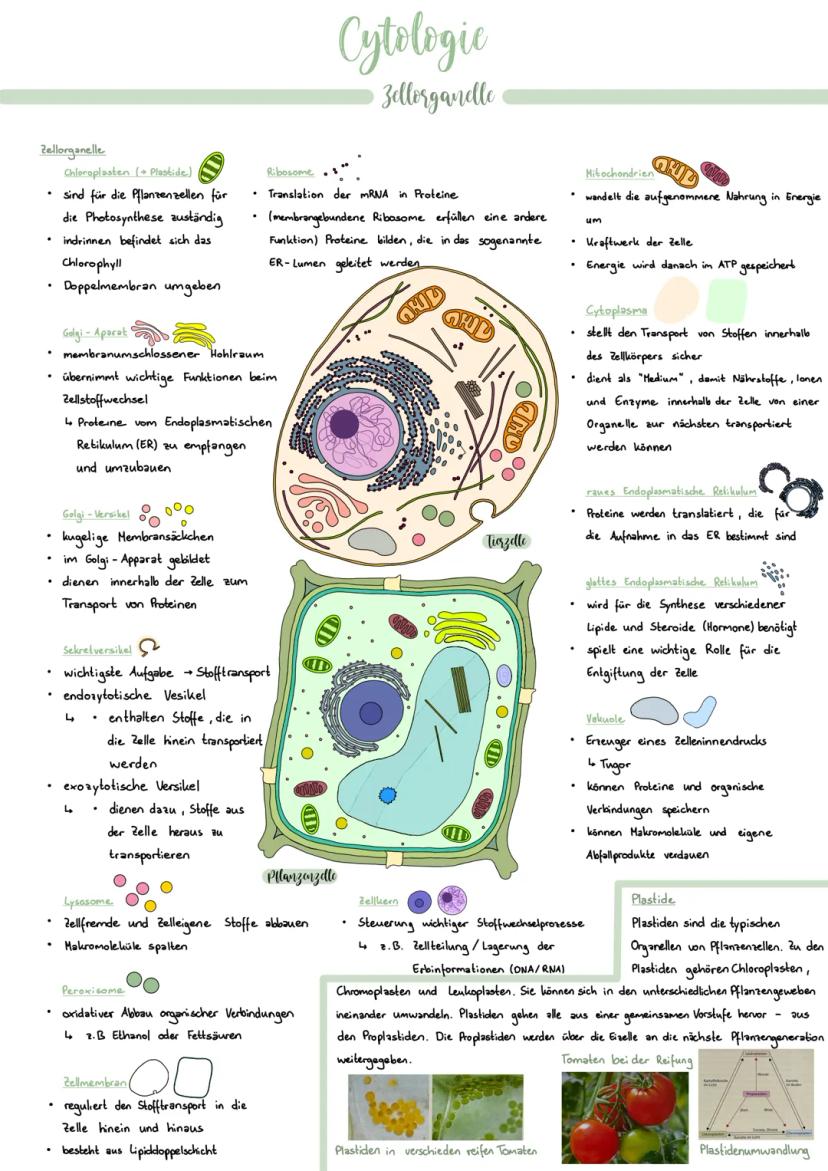 Cytologie
Zellorganelle
Zellorganelle
Chloroplasten (→ Plastide)
• sind für die Pflanzenzellen für
die Photosynthese zuständig
• indrinnen befindet sich das
Chlorophyll
• Doppelmembran umgeben
Golgi - Aparat
• membranumschlossener Hohlraum
• übernimmt wichtige Funktionen beim
Zellstoffwechsel
↳ Proteine vom Endoplasmatischen
Retikulum (ER) zu empfangen
und umzubauen
Golgi - Versikel
• kugelige Membransäckchen
• im Golgi - Apparat gebildet
• dienen innerhalb der Zelle zum
Transport von Proteinen
Sekretversikel
• wichtigste Aufgabe → Stofftransport
• endozytotische Vesikel
↳ • enthalten Stoffe, die in
die Zelle hinein transportiert
werden
• exozytotische Versikel
↳ • dienen dazu, Stoffe aus
der Zelle heraus zu
transportieren
Lysosome
• Zellfremde und Zelleigene Stoffe abbauen
• Makromoleküle spalten
Peroxisome
• oxidativer Abbau organischer Verbindungen
↳ z.B Ethanol oder Fettsäuren
Zellmembran
• reguliert den Stofftransport in die
Zelle hinein und hinaus
• besteht aus Lipiddoppelschicht
Ribosome
• Translation der mRNA in Proteine
• (membrangebundene Ribosome erfüllen eine andere
Funktion) Proteine bilden, die in das sogenannte
ER-Lumen geleitet werden
Tierzelle
Pflanzenzelle
Zellkern
• Steuerung wichtiger Stoffwechselprozesse
↳ z.B. Zellteilung / Lagerung der
Erbinformationen (DNA/RNA)
Mitochondrien
• wandelt die aufgenommene Nahrung in Energie
um
• Kraftwerk der Zelle
• Energie wird danach im ATP gespeichert
Cytoplasma
• stellt den Transport von Stoffen innerhalb
des Zellkörpers sicher
• dient als "Medium", damit Nährstoffe, Ionen
und Enzyme innerhalb der Zelle von einer
Organelle zur nächsten transportiert
werden können
raues Endoplasmatische Retikulum
• Proteine werden translatiert, die für
die Aufnahme in das ER bestimmt sind
glattes Endoplasmatische Retikulum
• wird für die Synthese verschiedener
Lipide und Steroide (Hormone) benötigt
• spielt eine wichtige Rolle für die
Entgiftung der Zelle
Vakuole
• Erzeuger eines Zelleninnendrucks
↳ Tugor
• können Proteine und organische
Verbindungen speichern
• können Makromoleküle und eigene
Abfallprodukte verdauen
Plastide
Plastiden sind die typischen
Organellen von Pflanzenzellen. Zu den
Plastiden gehören Chloroplasten,
Chromoplasten und Leukoplasten. Sie können sich in den unterschiedlichen Pflanzengeweben
ineinander umwandeln. Plastiden gehen alle aus einer gemeinsamen Vorstufe hervor - aus
den Proplastiden. Die Proplastiden werden über die Eizelle an die nächste Pflanzengeneration
weitergegeben.
Tomaten bei der Reifung
Plastiden in verschieden reifen Tomaten
Plastidenumwandlung